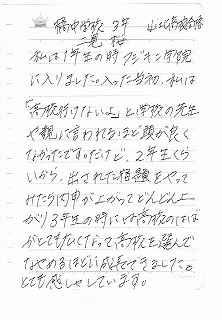 橘中学校 3年 山北高校合格
二見 桜
私は1年生の時フジゼン学院
に入りました。入った当初、私は
「高校行けないよ」と学校の先生
や親に言われるほど頭が良く
なかったです。だけど、2年生くら
いから、出された宿題をやって
みたら内申が上がってどんどん上
がり3年生の時には高校のはば
がとても広くなって高校を選んで
なやめるほどに成長できました。
とても感しゃしています。